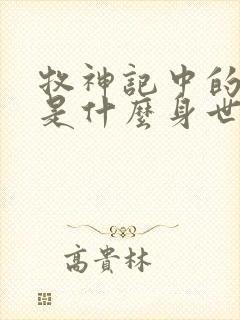 牧神記中的
是什麼身世
高貴林